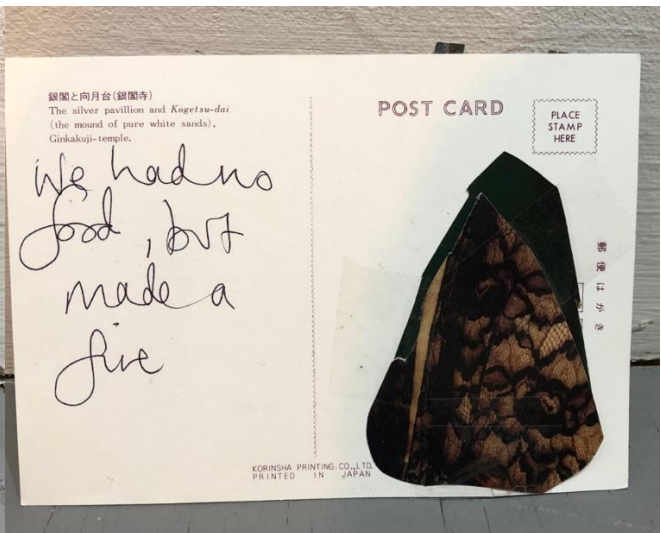 銀閣と向月台(銀閣寺)
The silver pavillion and Kogetsu-dai
(the mound of pure white sands),
Ginkakuji-temple.
We had no
food, but
made a
fire
POST CARD
PLACE
STAMP
HERE
郵便はがき
KORINSHA PRINTING CO., LTD.
PRINTED IN JAPAN